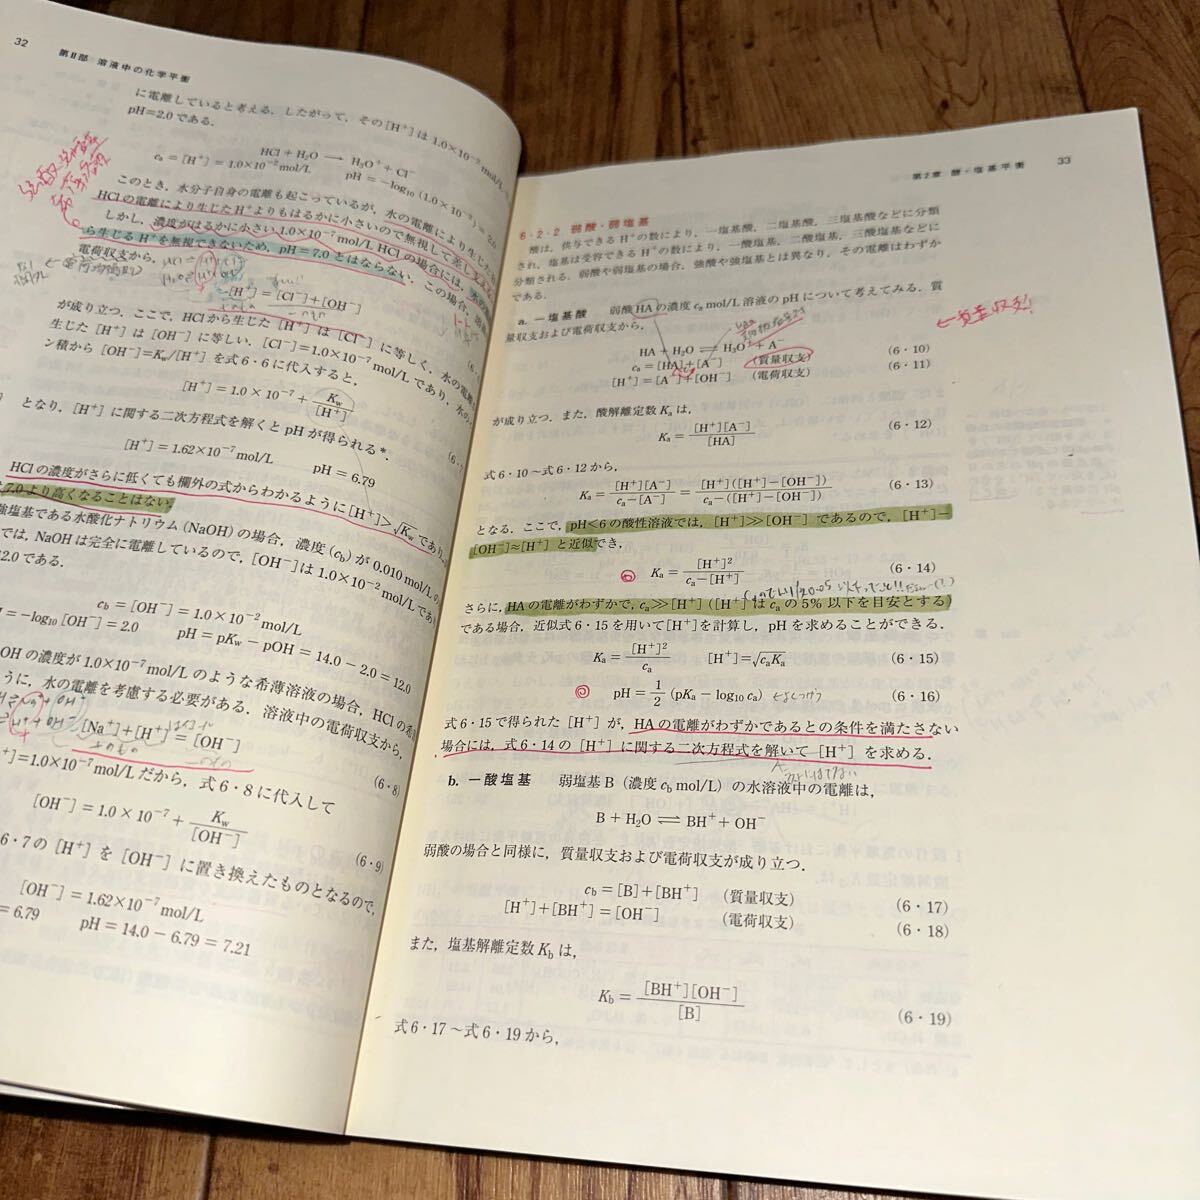 32
第Ⅱ部 溶液中の化学平衡
に電離していると考える．したがって，その[H⁺]は 1.0×10⁻²
pH＝2.0である．
HCl＋H₂O ⟶ H₃O⁺＋Cl⁻
cₐ＝[H⁺]＝1.0×10⁻²mol/L　　pH＝−log₁₀(1.0×10⁻²)＝2.0
このとき，水分子自身の電離も起こっているが，水の電離により生じた
HClの電離により生じたH⁺よりもはるかに小さいので無視して
しかし，濃度がはるかに小さい1.0×10⁻⁷mol/L HClの場合には，水の
ら生じるH⁺を無視できないため，pH＝7.0とはならない．この場合，溶液
電荷収支から，
[H⁺]＝[Cl⁻]＋[OH⁻]
が成り立つ．ここで，HClから生じた[H⁺]は[Cl⁻]に等しく，水の電離
生じた[H⁺]は[OH⁻]に等しい．[Cl⁻]＝1.0×10⁻⁷mol/Lであり，水の
ン積から[OH⁻]＝Kw/[H⁺]を式6・6に代入すると，
[H⁺]＝1.0×10⁻⁷＋Kw/[H⁺]
となり，[H⁺]に関する二次方程式を解くとpHが得られる*．
[H⁺]＝1.62×10⁻⁷mol/L　　pH＝6.79
HClの濃度がさらに低くても欄外の式からわかるように[H⁺]＞√Kwであり，
7.0より高くなることはない．
強塩基である水酸化ナトリウム(NaOH)の場合，濃度(c_b)が0.010mol/Lの
では，NaOHは完全に電離しているので，[OH⁻]は1.0×10⁻²mol/Lであ
2.0である．
c_b＝[OH⁻]＝1.0×10⁻²mol/L
＝−log₁₀[OH⁻]＝2.0　　pH＝pKw−pOH＝14.0−2.0＝12.0
OHの濃度が1.0×10⁻⁷mol/Lのような希薄溶液の場合，HClの希
うに，水の電離を考慮する必要がある．溶液中の電荷収支から，
[Na⁺]＋[H⁺]＝[OH⁻]
(6・8)
]＝1.0×10⁻⁷mol/Lだから，式6・8に代入して
[OH⁻]＝1.0×10⁻⁷＋Kw/[OH⁻]
(6・9)
6・7の[H⁺]を[OH⁻]に置き換えたものとなるので，
[OH⁻]＝1.62×10⁻⁷mol/L
＝6.79　　pH＝14.0−6.79＝7.21
第2章 酸・塩基平衡　33
6・2・2 弱酸・弱塩基
酸は，供与できるH⁺の数により，一塩基酸，二塩基酸，三塩基酸などに分類
され，塩基は受容できるH⁺の数により，一酸塩基，二酸塩基，三酸塩基などに
分類される．弱酸や弱塩基の場合，強酸や強塩基とは異なり，その電離はわずか
である．
a. 一塩基酸　弱酸HAの濃度cₐ mol/L溶液のpHについて考えてみる．質
量収支および電荷収支から，
←質量収支!
HA＋H₂O ⇌ H₃O⁺＋A⁻
cₐ＝[HA]＋[A⁻]　(質量収支)　(6・10)
[H⁺]＝[A⁻]＋[OH⁻]　(電荷収支)　(6・11)
が成り立つ．また，酸解離定数Kₐは，
Kₐ＝[H⁺][A⁻]/[HA]　(6・12)
式6・10〜式6・12から，
Kₐ＝[H⁺][A⁻]/(cₐ−[A⁻])＝[H⁺]([H⁺]−[OH⁻])/(cₐ−([H⁺]−[OH⁻]))　(6・13)
となる．ここで，pH＜6の酸性溶液では，[H⁺]≫[OH⁻]であるので，[H⁺]−
[OH⁻]≈[H⁺]と近似でき，
Kₐ＝[H⁺]²/(cₐ−[H⁺])　(6・14)
さらに，HAの電離がわずかで，cₐ≫[H⁺]([H⁺]はcₐの5%以下を目安とする)
である場合，近似式6・15を用いて[H⁺]を計算し，pHを求めることができる．
Kₐ＝[H⁺]²/cₐ　　[H⁺]＝√cₐKₐ　(6・15)
pH＝1/2(pKₐ−log₁₀ cₐ)　(6・16)
式6・15で得られた[H⁺]が，HAの電離がわずかであるとの条件を満たさない
場合には，式6・14の[H⁺]に関する二次方程式を解いて[H⁺]を求める．
b. 一酸塩基　弱塩基B(濃度c_b mol/L)の水溶液中の電離は，
B＋H₂O ⇌ BH⁺＋OH⁻
弱酸の場合と同様に，質量収支および電荷収支が成り立つ．
c_b＝[B]＋[BH⁺]　(質量収支)　(6・17)
[H⁺]＋[BH⁺]＝[OH⁻]　(電荷収支)　(6・18)
また，塩基解離定数K_bは，
K_b＝[BH⁺][OH⁻]/[B]　(6・19)
式6・17〜式6・19から，